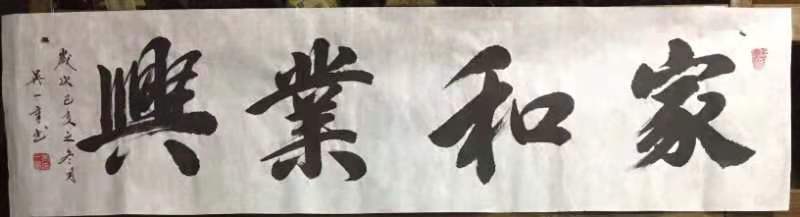 家和業興
歲次己亥之冬月
吴一書